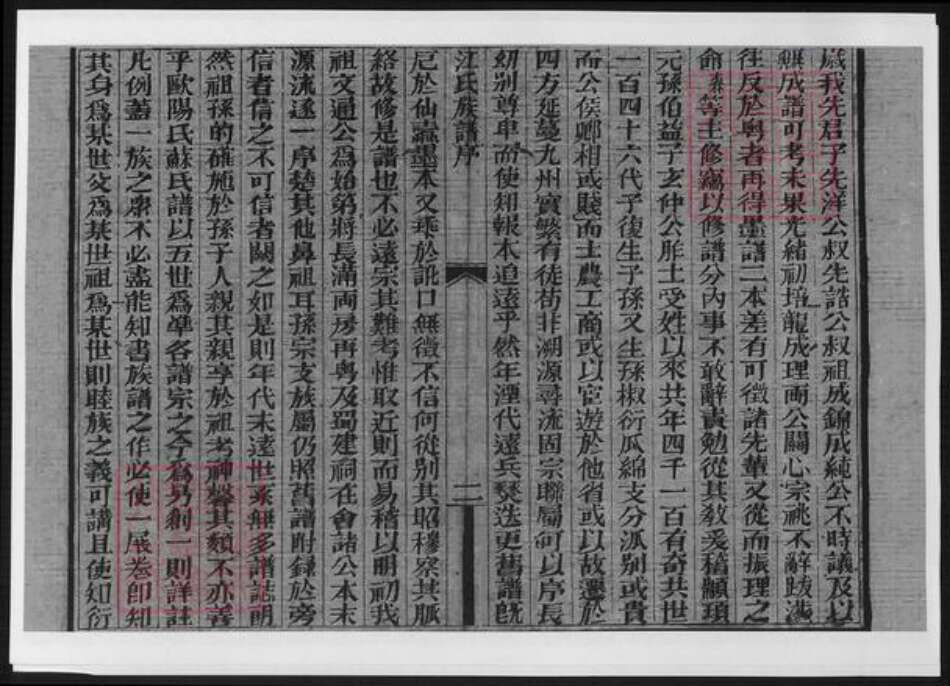 歲我先君子先洋公叔先誥公叔祖成錦成純公不時議及以
無成譜可考未果光緒初培龍成理兩公關心宗祧不辭跋涉
往反於粤者再得墨譜二本差有可徵諸先輩又從而振理之
命等主修竊以修譜分內事不敢辭責勉從其教爰稽顓頊
元孫伯益子玄仲公胙土受姓以來共年四千一百有奇共世
一百四十六代子復生子孫又生孫椒衍瓜綿支分派別或貴
而公侯卿相或賤而士農工商或以宦遊於他省或以故遷於
四方延蔓九州實繁有徒苟非溯源尋流固宗聯屬何以序長
幼別尊卑而使知報本追遠乎然年湮代遠兵燹迭更舊譜旣
江氏族譜序 二
厄於仙蠹墨本又乖於訛口無徵不信何從別其昭穆察其脈
絡故修是譜也不必遠宗其難考惟取近則而易稽以明初我
祖文通公爲始第將長滿兩房再粤及蜀建祠在會諸公本末
源流逐一序楚其他鼻祖耳孫宗支族屬仍照舊譜附錄於旁
信者信之不可信者闕之如是則年代未遠世系無多譜誌明
然祖孫的確施於孫子人親其親享於祖考神馨其類不亦善
乎歐陽氏蘇氏譜以五世爲準各譜宗之今爲另創一則詳註
凡例蓋一族之衆不必盡能知書族譜之作必使一展卷卽知
其身爲某世父爲某世祖爲某世則睦族之義可講且使知衍